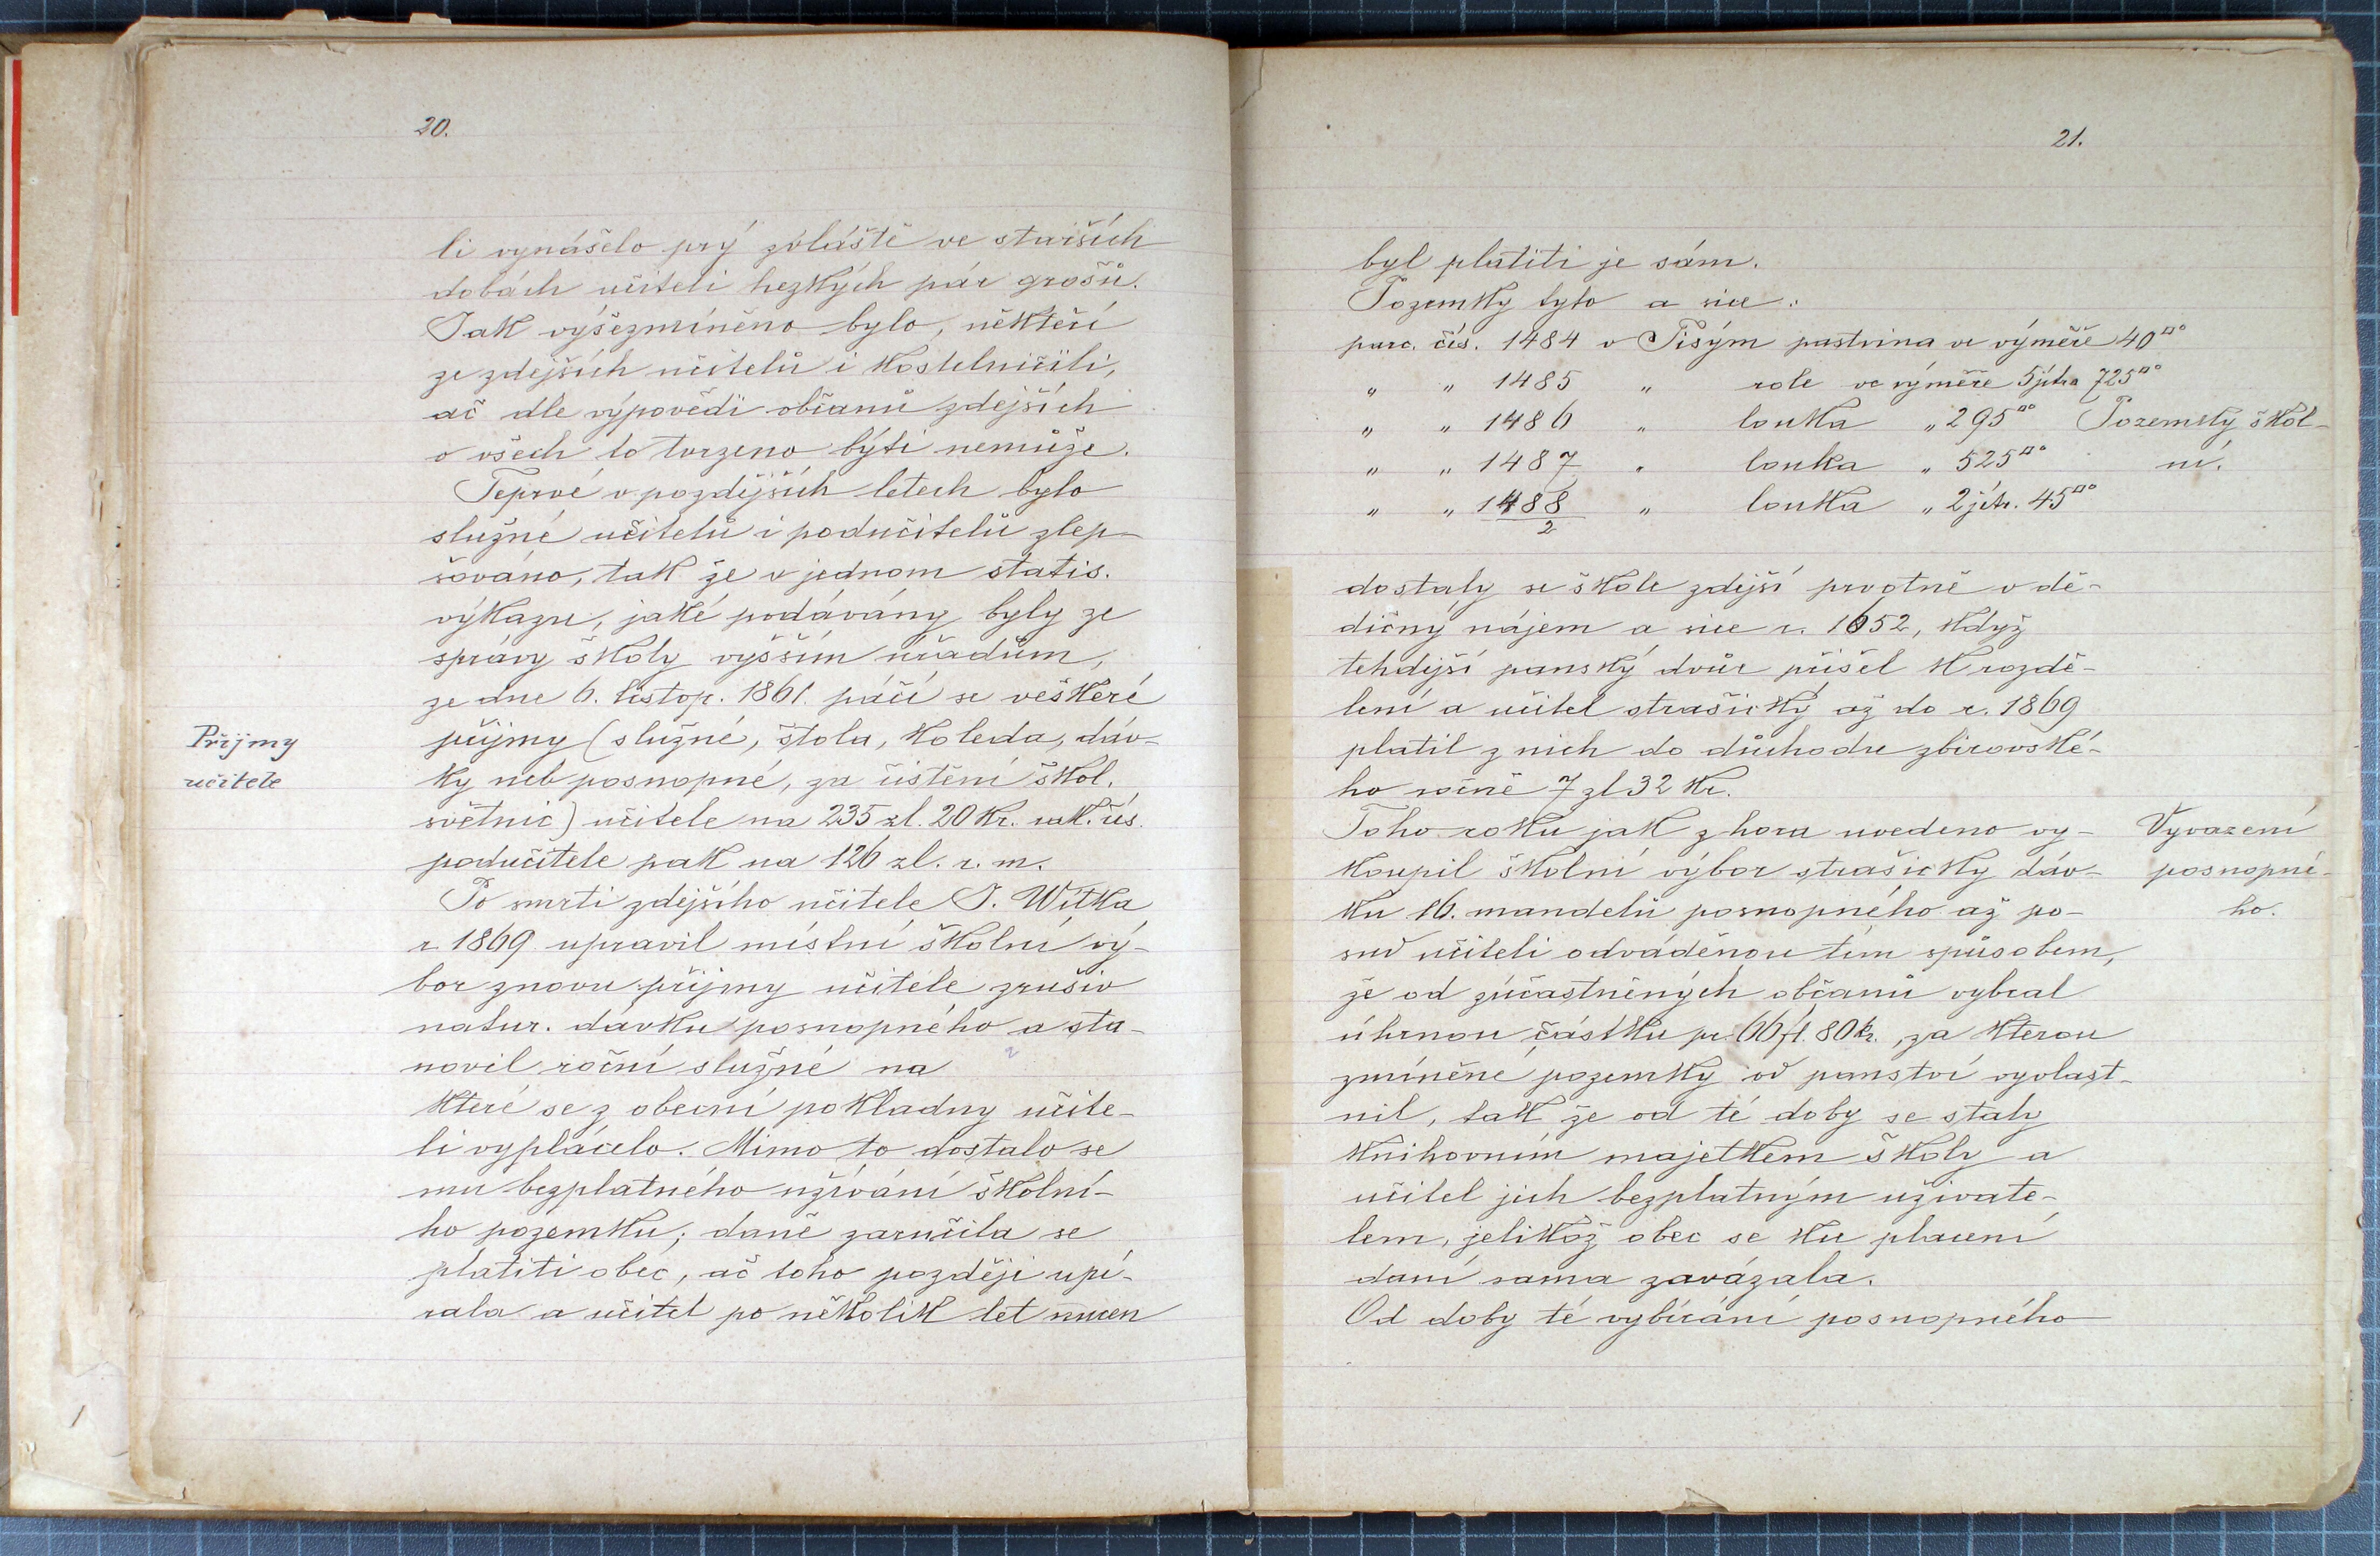 20.
li vynášelo prý zvláště ve starších
dobách učiteli hezkých pár grošů.
Jak výšezmíněno bylo, někteří
ze zdejších učitelů i kostelničili,
ač dle výpovědi občanů zdejších
o všech to tvrzeno býti nemůže.
Teprvé v pozdějších letech bylo
služné učitelů i podučitelů zlep-
šováno, tak že v jednom statis.
výkazu, jaké podávány byly ze
správy školy vyšším úřadům,
ze dne 6. listop. 1861. páčí se veškeré
Příjmy
učitele
příjmy (služné, štola, koleda, dáv-
ky neb posnopné, za čistění škol.
světnic) učitele na 235 zl. 20 kr. rak. čís.
podučitele pak na 126 zl. r. m.
Po smrti zdejšího učitele J. Wítka
r. 1869 upravil místní školní vý-
bor znovu příjmy učitele zrušiv
natur. dávku posnopného a sta-
novil roční služné na
které se z obecní pokladny učite-
li vyplácelo. Mimo to dostalo se
mu bezplatného užívání školní-
ho pozemku; daně zaručila se
platiti obec, ač toho později upí-
rala a učitel po několik let nucen
21.
byl platiti je sám.
Pozemky tyto a sice:
parc. čís. 1484 v Tisým pastvina ve výměře 40□°
„ „ 1485 „ role ve výměře 5 jitra 725□°
„ „ 1486 „ louka „ 295□°
„ „ 1487 „ louka „ 525□°
„ „ 1488/2 „ louka „ 2 jitr. 45□°
Pozemky škol-
ní.
dostaly se škole zdejší prvotně v dě-
dičný nájem a sice r. 1652, když
tehdejší panský dvůr přišel k rozdě-
lení a učitel strašický až do r. 1869
platil z nich do důchodu zbirovské-
ho ročně 7 zl 32 kr.
Toho roku jak zhora uvedeno vy-
koupil školní výbor strašický dáv-
ku 16. mandelů posnopného až po-
sud učiteli odváděnou tím spůsobem,
že od zúčastněných občanů vybral
úhrnou částku pr. 66 fl. 80 kr., za kterou
zmíněné pozemky od panství vyvlast-
nil, tak že od té doby se staly
knihovním majetkem školy a
učitel jich bezplatným uživate-
lem, jelikož obec se ku placení
daní sama zavázala.
Od doby té vybírání posnopného
Vyvazení
posnopné-
ho.